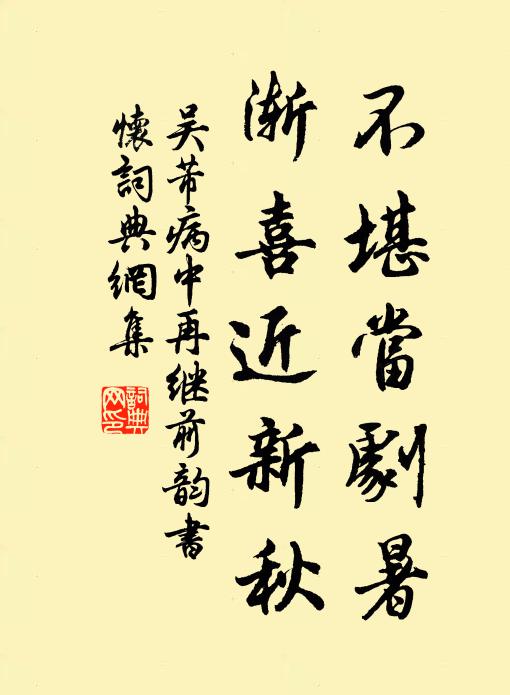 不堪當劇暑
漸喜近新秋
吴芾病中再继前韵書
懷詞典網集
詞典
网印